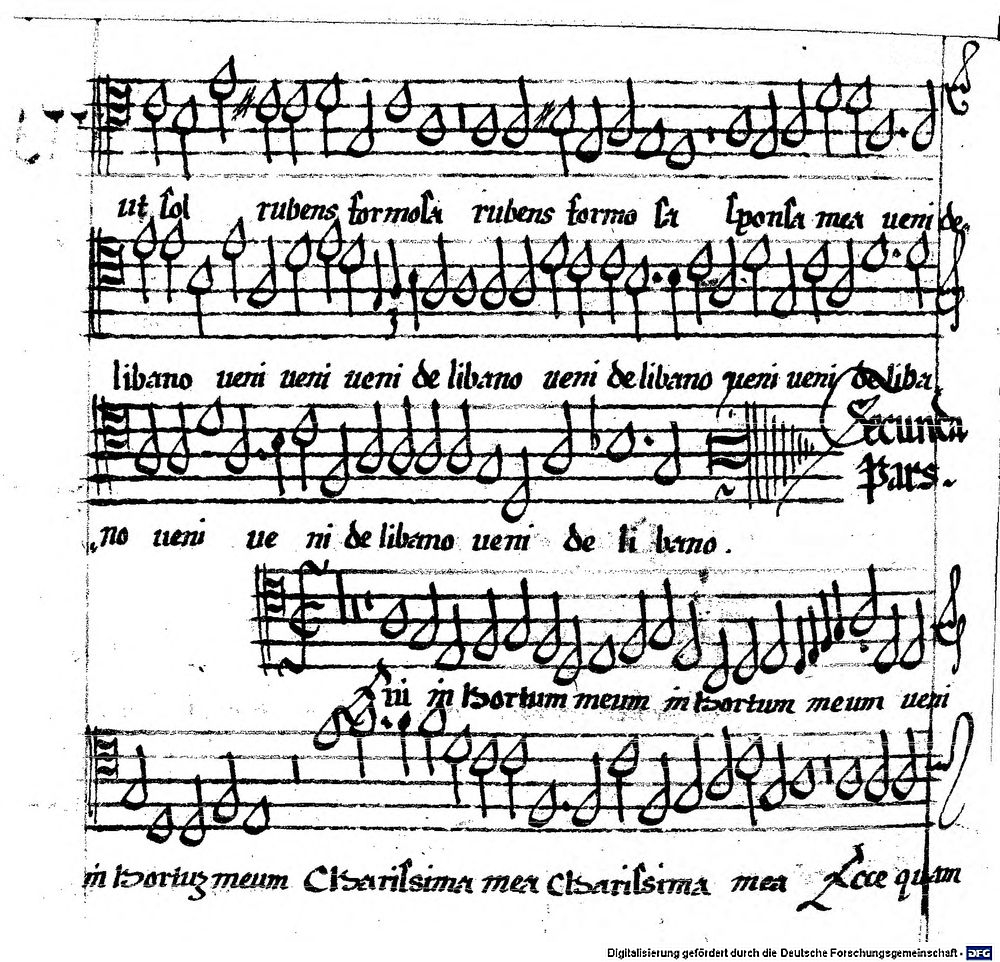 ut ſol rubens formoſa rubens formo ſa ſponſa mea ueni de
libano ueni ueni ueni de libano ueni de libano ueni ueni de liba
no ueni ue ni de libano ueni de li bano .
Secunda
Pars.
in hortum meum in hortum meum ueni
in hortuʒ meum Chariſsima mea Chariſsima mea Ecce quam
Digitalisierung gefördert durch die Deutsche Forschungsgemeinschaft - DFG